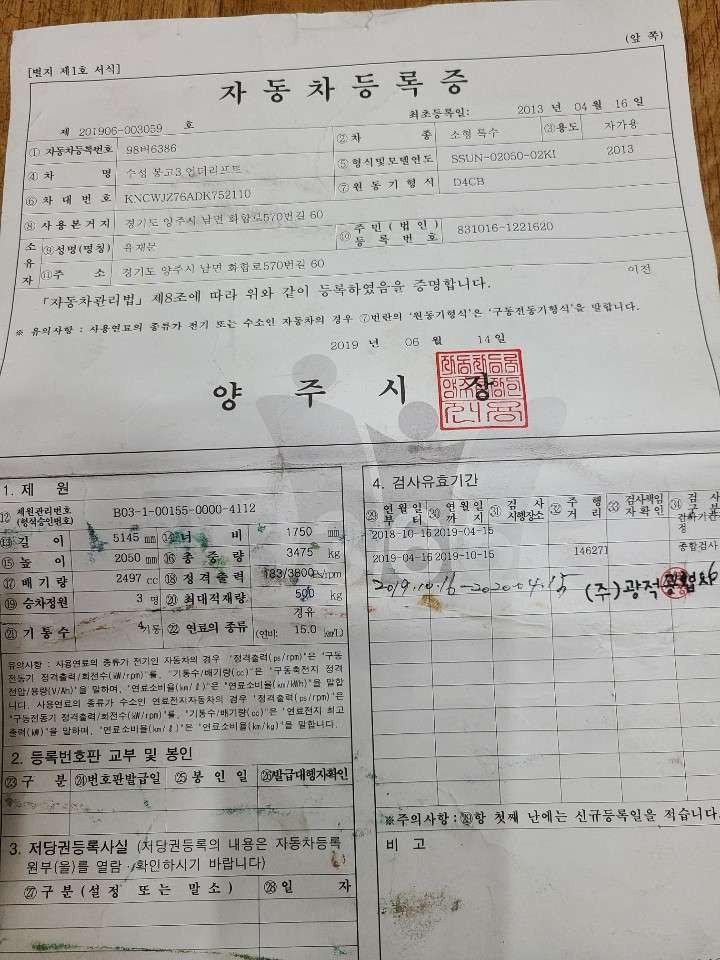 [별지 제1호 서식]
(앞 쪽)
자동차등록증
제 201906-003059 호
최초등록일: 2013 년 04 월 16 일
① 자동차등록번호 98버6386 ② 차 종 소형 특수 ③ 용도 자가용
④ 차 명 수성 봉고3 언더리프트 ⑤ 형식및모델연도 SSUN-02050-02KI 2013
⑥ 차 대 번 호 KNCWJZ76ADK752110 ⑦ 원 동 기 형 식 D4CB
⑧ 사 용 본 거 지 경기도 양주시 남면 화합로570번길 60
소유자 ⑨ 성명(명칭) 유재문 ⑩ 주 민 ( 법 인 ) 등 록 번 호 831016-1221620
⑪ 주 소 경기도 양주시 남면 화합로570번길 60
이전
「자동차관리법」 제8조에 따라 위와 같이 등록하였음을 증명합니다.
※ 유의사항 : 사용연료의 종류가 전기 또는 수소인 자동차의 경우 ⑦번란의 '원동기형식'은 '구동전동기형식'을 말합니다.
2019 년 06 월 14 일
양 주 시 장
1. 제 원
⑫ 제원관리번호 (형식승인번호) B03-1-00155-0000-4112
⑬ 길 이 5145 mm ⑭ 너 비 1750 mm
⑮ 높 이 2050 mm ⑯ 총 중 량 3475 kg
⑰ 배 기 량 2497 cc ⑱ 정 격 출 력 133/3800 ps/rpm
⑲ 승차정원 3 명 ⑳ 최대적재량 500 kg
㉑ 기 통 수 4 기통 ㉒ 연료의 종류 경유 (연비: 15.0 km/L)
유의사항 : 사용연료의 종류가 전기인 자동차의 경우 "정격출력(ps/rpm)"은 "구동
전동기 정격출력/회전수(kW/rpm)"를, "기통수/배기량(cc)"은 "구동축전지 정격
전압/용량(V/Ah)"을 말하며, "연료소비율(km/ℓ)"은 "연료소비율(km/kWh)"을 말합
니다. 사용연료의 종류가 수소인 연료전지자동차의 경우 "정격출력(ps/rpm)"은
"구동전동기 정격출력/회전수(kW/rpm)"를, "기통수/배기량(cc)"은 "연료전지 최고
출력(kW)"을 말하며, "연료소비율(km/ℓ)"은 "연료소비율(km/kg)"을 말합니다.
2. 등록번호판 교부 및 봉인
㉓ 구 분 ㉔ 번호판발급일 ㉕ 봉 인 일 ㉖ 발급대행자확인
3. 저당권등록사실 (저당권등록의 내용은 자동차등록
원부(을)를 열람·확인하시기 바랍니다)
㉗ 구 분 (설 정 또 는 말 소) ㉘ 일 자
4. 검사유효기간
㉙ 연 월 일 부 터 ㉚ 연 월 일 까 지 ㉛ 검 사 시행장소 ㉜ 주 행 거 리 ㉝ 검사책임 자확인 ㉞ 검 사 구 분
2018-10-16 2019-04-15
2019-04-16 2019-10-15 146271 종합검사
2019.10.16-2020.4.15 (주)광적
※주의사항:㉙항 첫째 난에는 신규등록일을 적습니다.
비 고